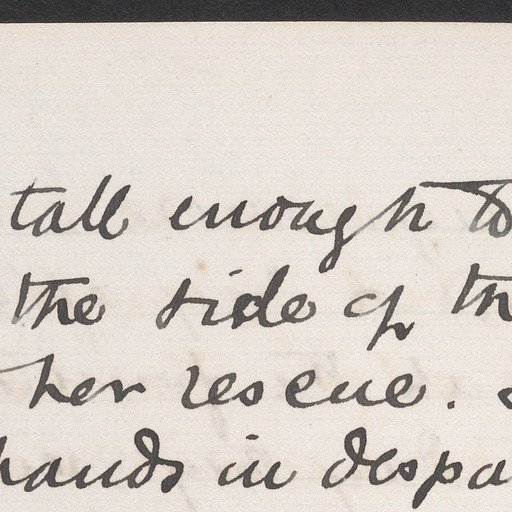 tall enough to
the side of th
her rescue.
hands in despa